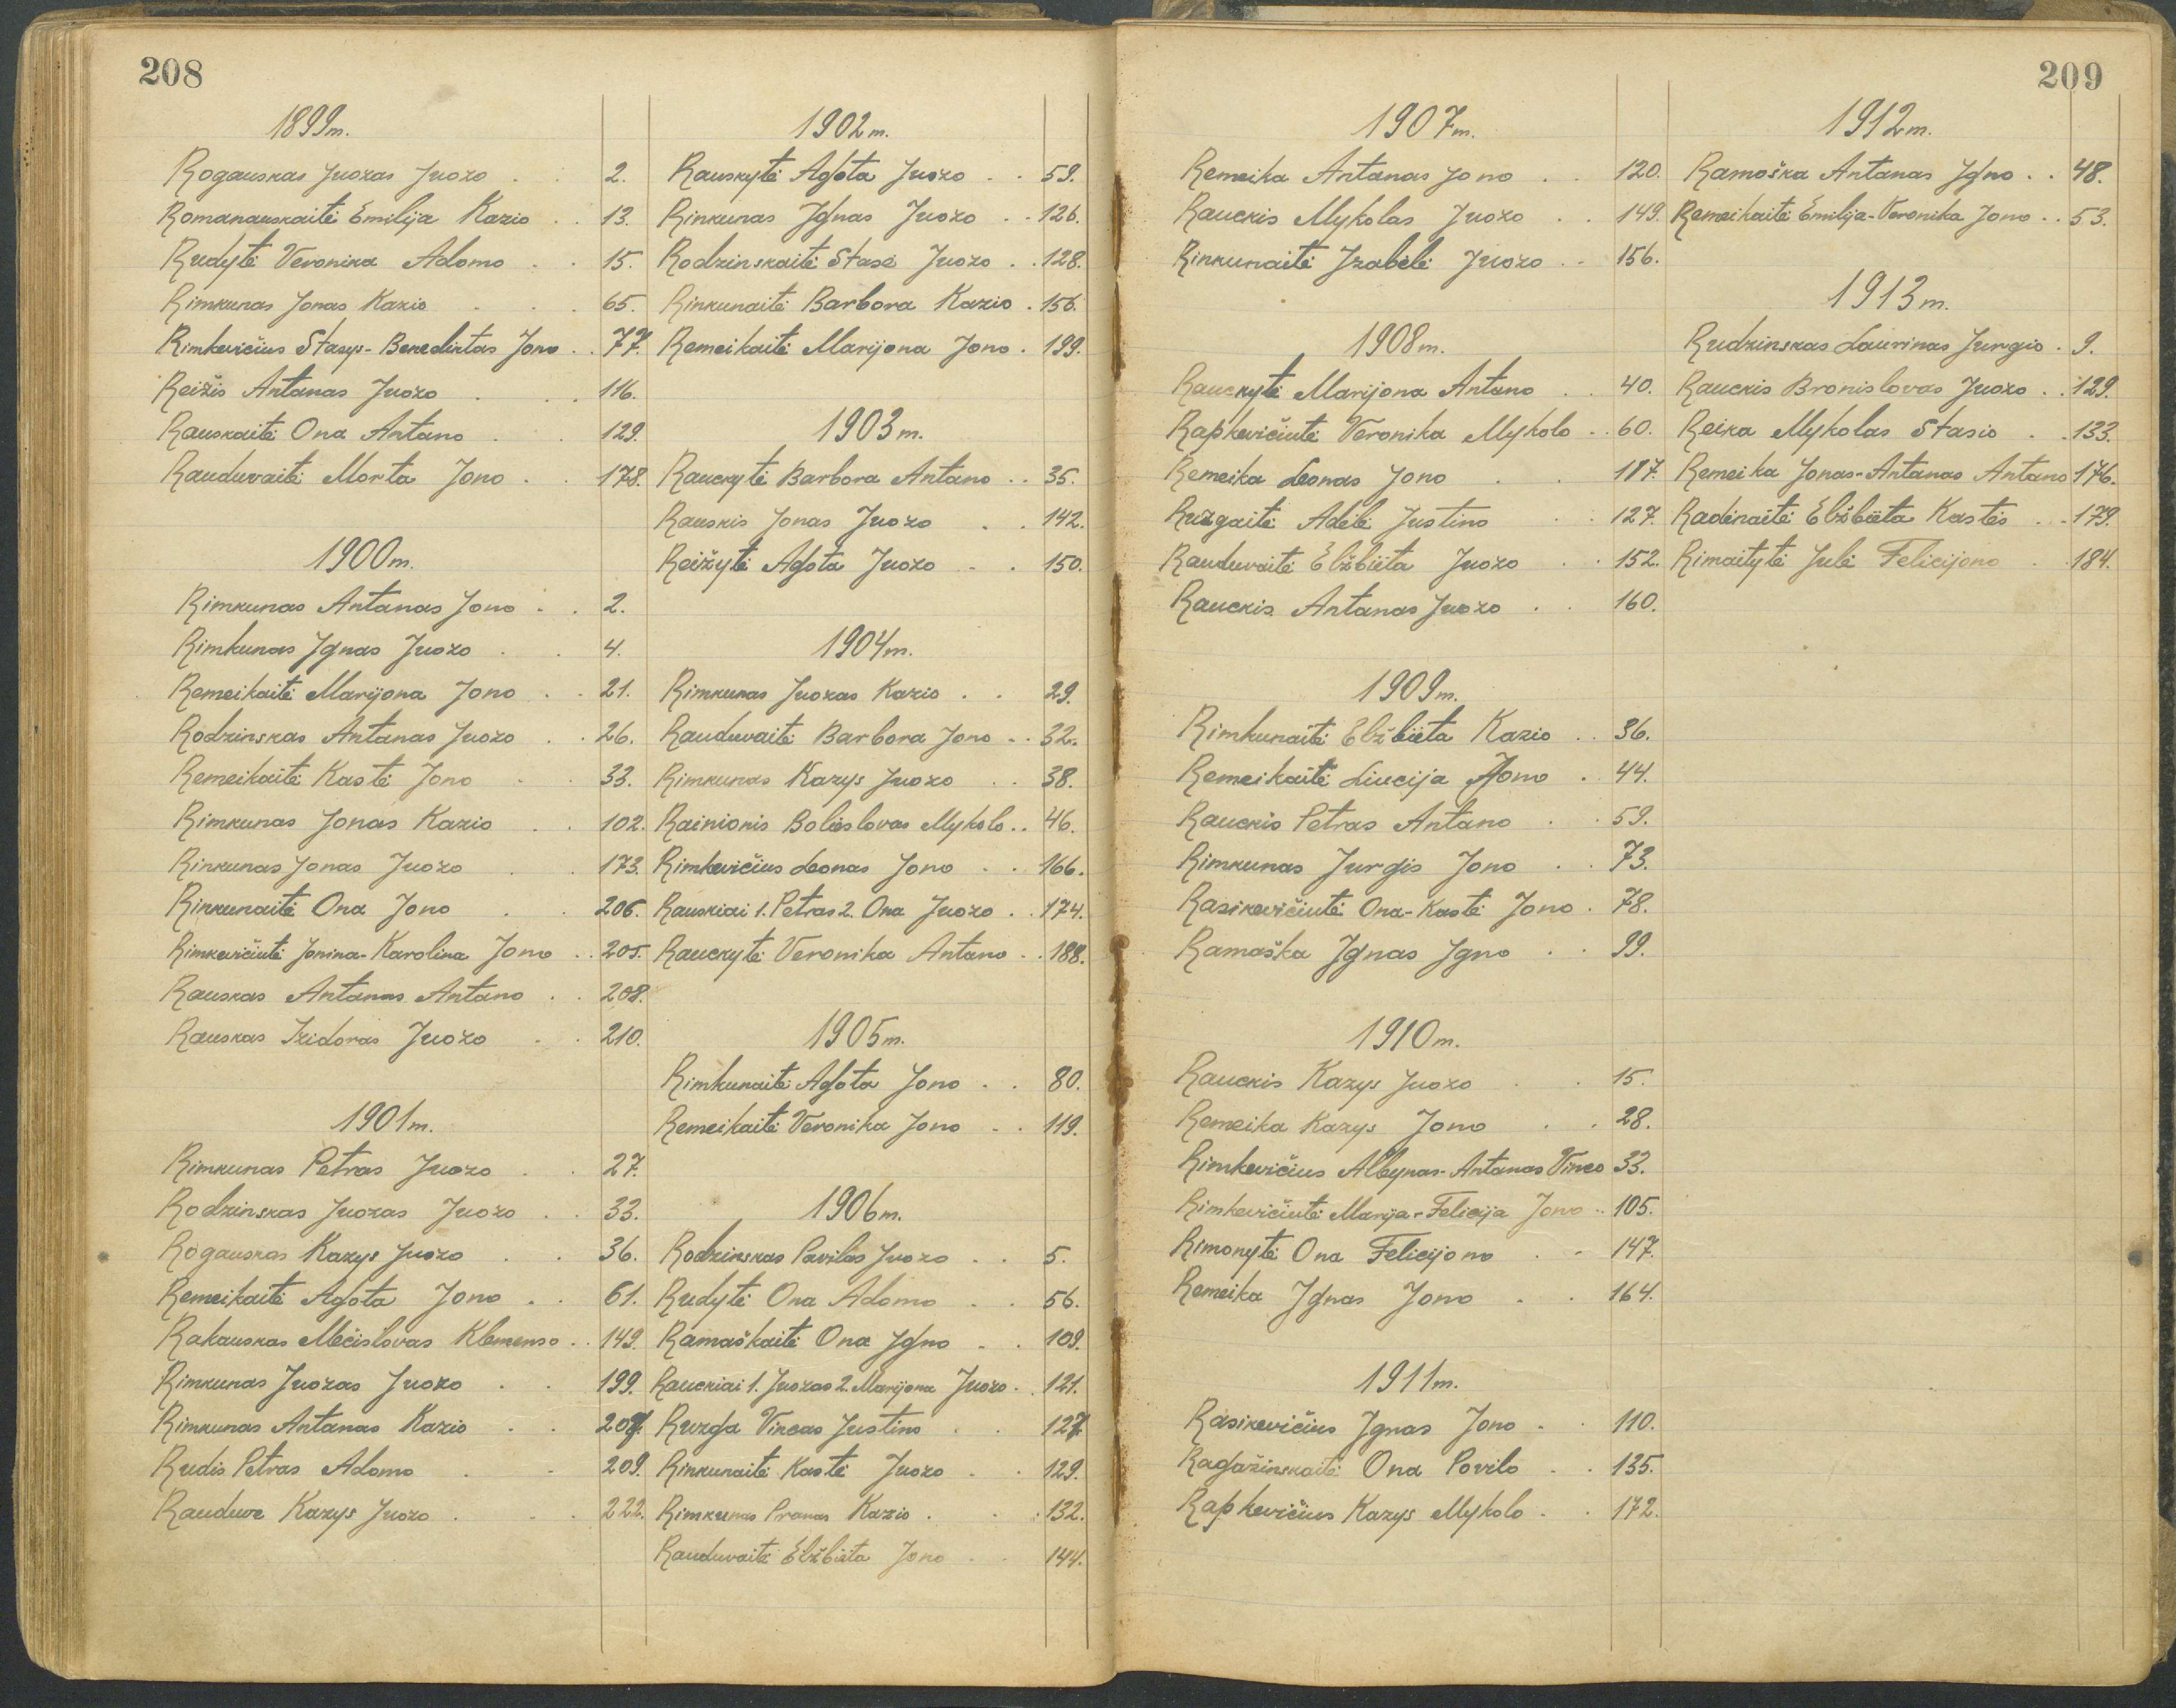 208
1899m.
Rogauskas Juozas Juozo . . 2.
Romanauskaitė Emilija Kazio . . 13.
Rudytė Veronika Adomo . . 15.
Rimkunas Jonas Kazio . . . 65.
Rimkevičius Stasys-Benediktas Jono . . 77.
Reižis Antanas Juozo . . . 116.
Rauskaitė Ona Antano . . 129.
Rauduvaitė Morta Jono . . 178.
1900m.
Rimkunas Antanas Jono . . 2.
Rimkunas Ignas Juozo . . 4.
Remeikaitė Marijona Jono . . 21.
Rodzinskas Antanas Juozo . . 26.
Remeikaitė Kastė Jono . . 33.
Rimkunas Jonas Kazio . . 102.
Rinkunas Jonas Juozo . . 173.
Rinkunaitė Ona Jono . . 206.
Rimkevičiutė Jonina-Karolina Jono . . 205.
Rauskas Antanas Antano . . 208.
Rauskas Izidoras Juozo . . 210.
1901m.
Rimkunas Petras Juozo . . 27.
Rodzinskas Juozas Juozo . . 33.
Rogauskas Kazys Juozo . . 36.
Remeikaitė Agota Jono . . 61.
Rakauskas Mečislovas Klemenso . . 149.
Rimkunas Juozas Juozo . . 199.
Rimkunas Antanas Kazio . . 207.
Rudis Petras Adomo . . 209.
Rauduve Kazys Juozo . . . 222.
1902m.
Rauskytė Agota Juozo . . 59.
Rinkunas Ignas Juozo . . 126.
Rodzinskaitė Stasė Juozo . . 128.
Rinkunaitė Barbora Kazio . 156.
Remeikaitė Marijona Jono . 199.
1903m.
Rauckytė Barbora Antano . . 35.
Rauskis Jonas Juozo . . 142.
Reižytė Agota Juozo . . 150.
1904m.
Rimkunas Juozas Kazio . . 29.
Rauduvaitė Barbora Jono . . 32.
Rimkunas Kazys Juozo . . 38.
Rainionis Boleslovas Mykolo . . 46.
Rimkevičius Leonas Jono . . 166.
Rauskiai 1. Petras 2. Ona Juozo . . 174.
Rauckytė Veronika Antano . . 188.
1905m.
Rimkunaitė Agota Jono . . 80.
Remeikaitė Veronika Jono . . 119.
1906m.
Rodzinskas Povilas Juozo . . 5.
Rudytė Ona Adomo . . 56.
Ramaškaitė Ona Igno . . 109.
Rauckiai 1. Juozas 2. Marijona Juozo . . 121.
Ruzga Vincas Justino . . 127.
Rinkunaitė Kastė Juozo . . 129.
Rimkunas Pranas Kazio . . . 132.
Rauduvaitė Elžbieta Jono . . 144.
209
1907m.
Remeika Antanas Jono . . 120.
Rauckis Mykolas Juozo . . 149.
Rinkunaitė Izabelė Juozo . . 156.
1908m.
Rauckytė Marijona Antano . . 40.
Rapkevičiutė Veronika Mykolo . . 60.
Remeika Leonas Jono . . 187.
Ruzgaitė Adelė Justino . . 127.
Rauduvaitė Elžbieta Juozo . . 152.
Rauckis Antanas Juozo . . 160.
1909m.
Rimkunaitė Elžbieta Kazio . . 36.
Remeikaitė Liucija Jono . 44.
Rauckis Petras Antano . . 59.
Rimkunas Jurgis Jono . . 73.
Rasikevičiutė Ona-Kastė Jono . 78.
Ramaška Ignas Igno . . 99.
1910m.
Rauckis Kazys Juozo . . 15.
Remeika Kazys Jono . . 28.
Rimkevičius Albynas-Antanas Vinco 33.
Rimkevičiutė Marija-Felicija Jono . . 105.
Rimonytė Ona Felicijono . . 147.
Remeika Ignas Jono . . 164.
1911m.
Rasikevičius Ignas Jono . . 110.
Ragažinskaitė Ona Povilo . . 135.
Rapkevičius Kazys Mykolo . . 172.
1912m.
Ramoška Antanas Igno . . 48.
Remeikaitė Emilija-Veronika Jono . . 53.
1913m.
Rudzinskas Laurinas Jurgio . 9.
Rauckis Bronislovas Juozo . . 129.
Reika Mykolas Stasio . . 133.
Remeika Jonas-Antanas Antano 176.
Radėnaitė Elžbieta Kastės . . 179.
Rimaitytė Julė Felicijono . . 184.